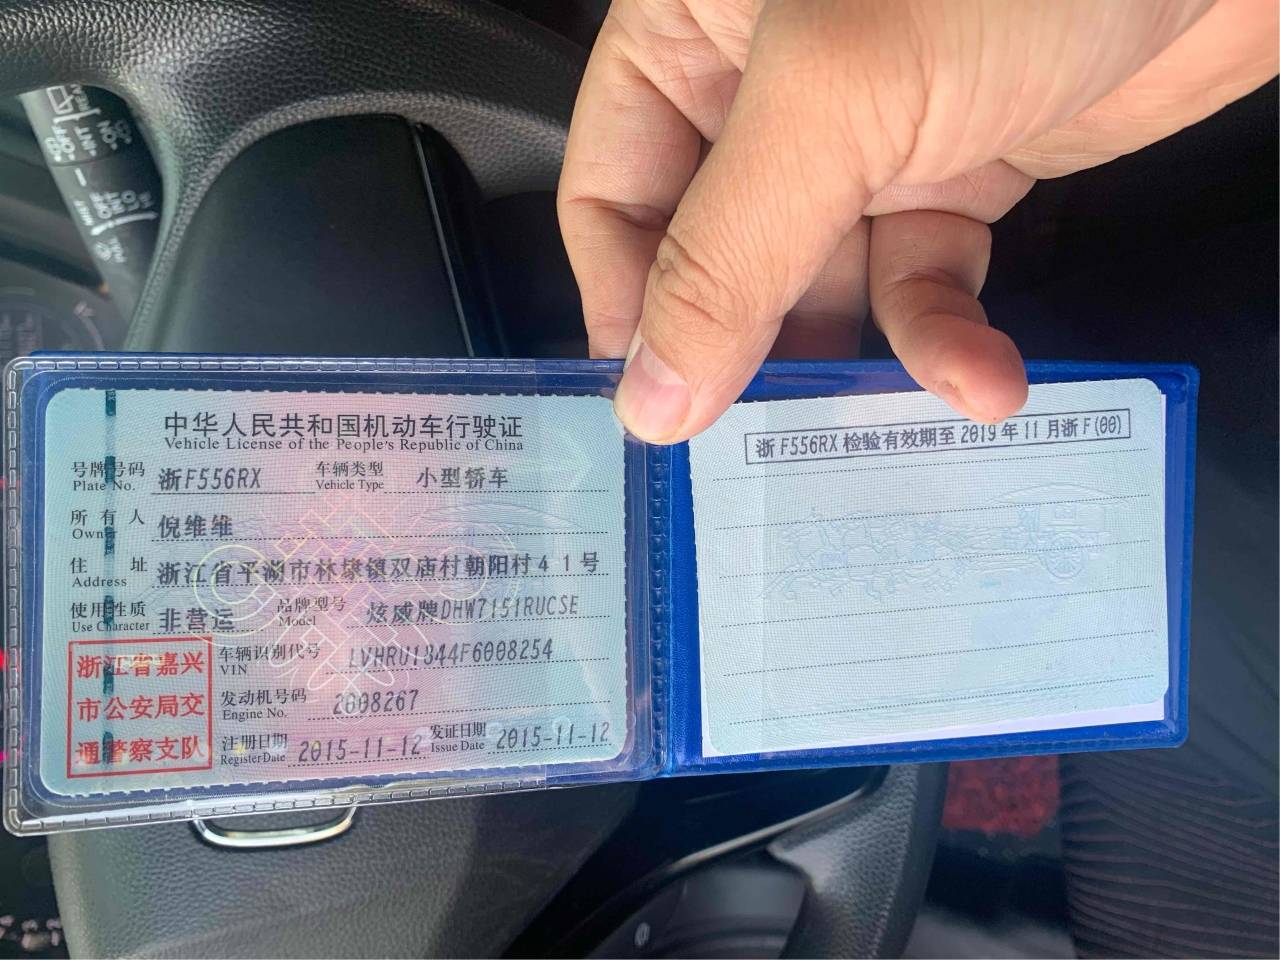 中华人民共和国机动车行驶证
Vehicle License of the People's Republic of China
号牌号码 浙F556RX 车辆类型 小型轿车
Plate No. Vehicle Type
所有人 倪维维
Owner
住址 浙江省平湖市林埭镇双庙村朝阳村41号
Address
使用性质 非营运 品牌型号 炫威牌DHW7151RUCSE
Use Character Model
浙江省嘉兴
市公安局交
通警察支队
车辆识别代号 LVHRU1844F6008254
VIN
发动机号码 2008267
Engine No.
注册日期 2015-11-12 发证日期 2015-11-12
Register Date Issue Date
浙F556RX检验有效期至2019年11月浙F(00)
OFF
INT